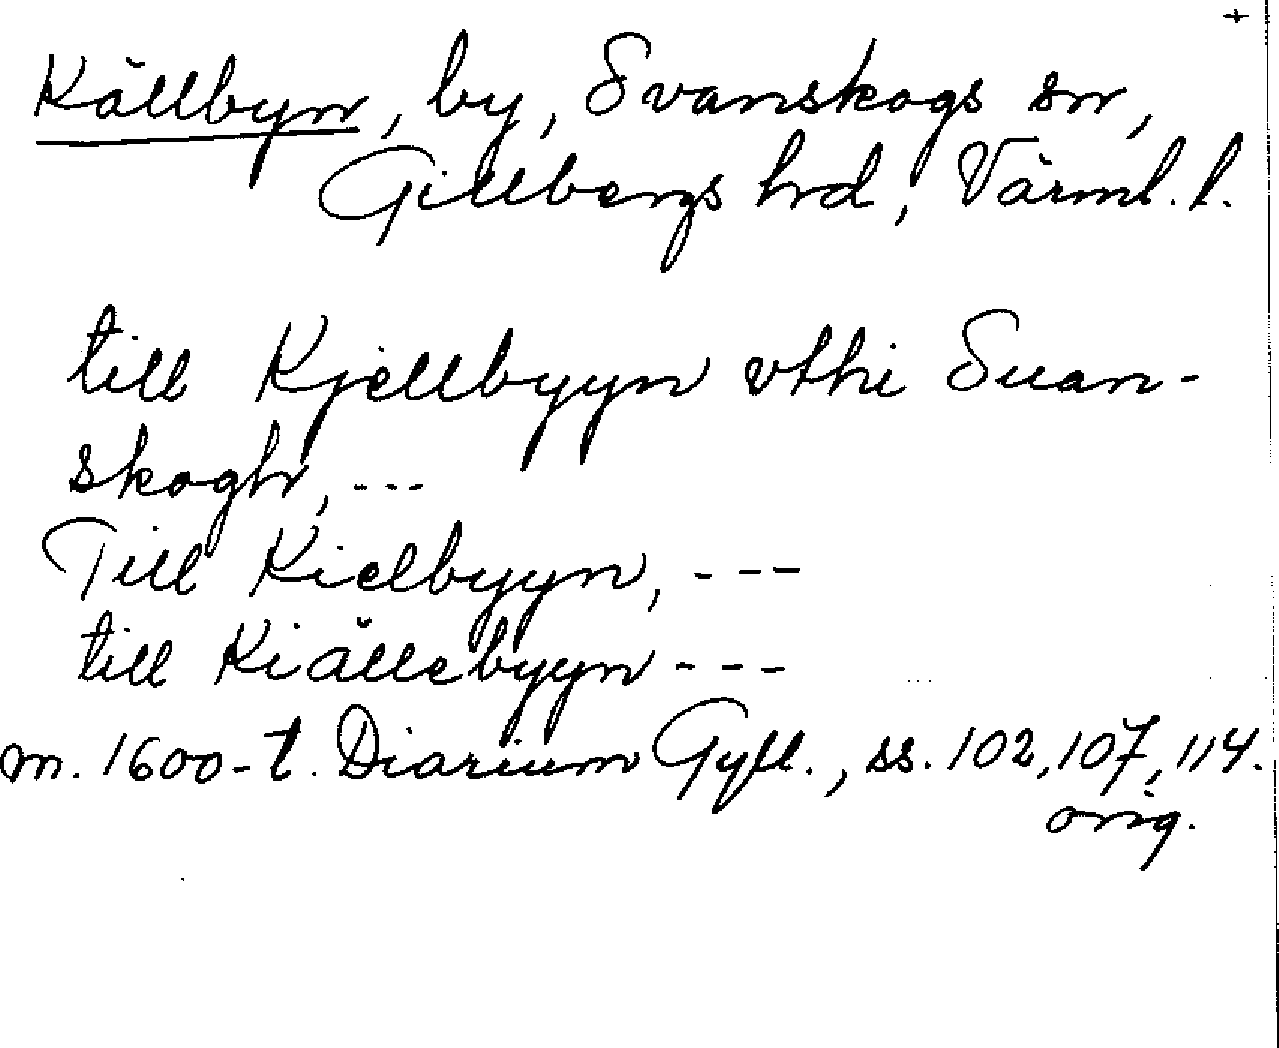 +
Källbyn, by, Svanskogs sn,
Gillbergs hrd, Värml. l.
till Kjellbyyn vthi Suan-
skogh, ---
Till Kielbyyn, ---
till Kiällebyyn ---
m. 1600-t. Diarium Gyll., ss. 102, 107, 114.
orig.